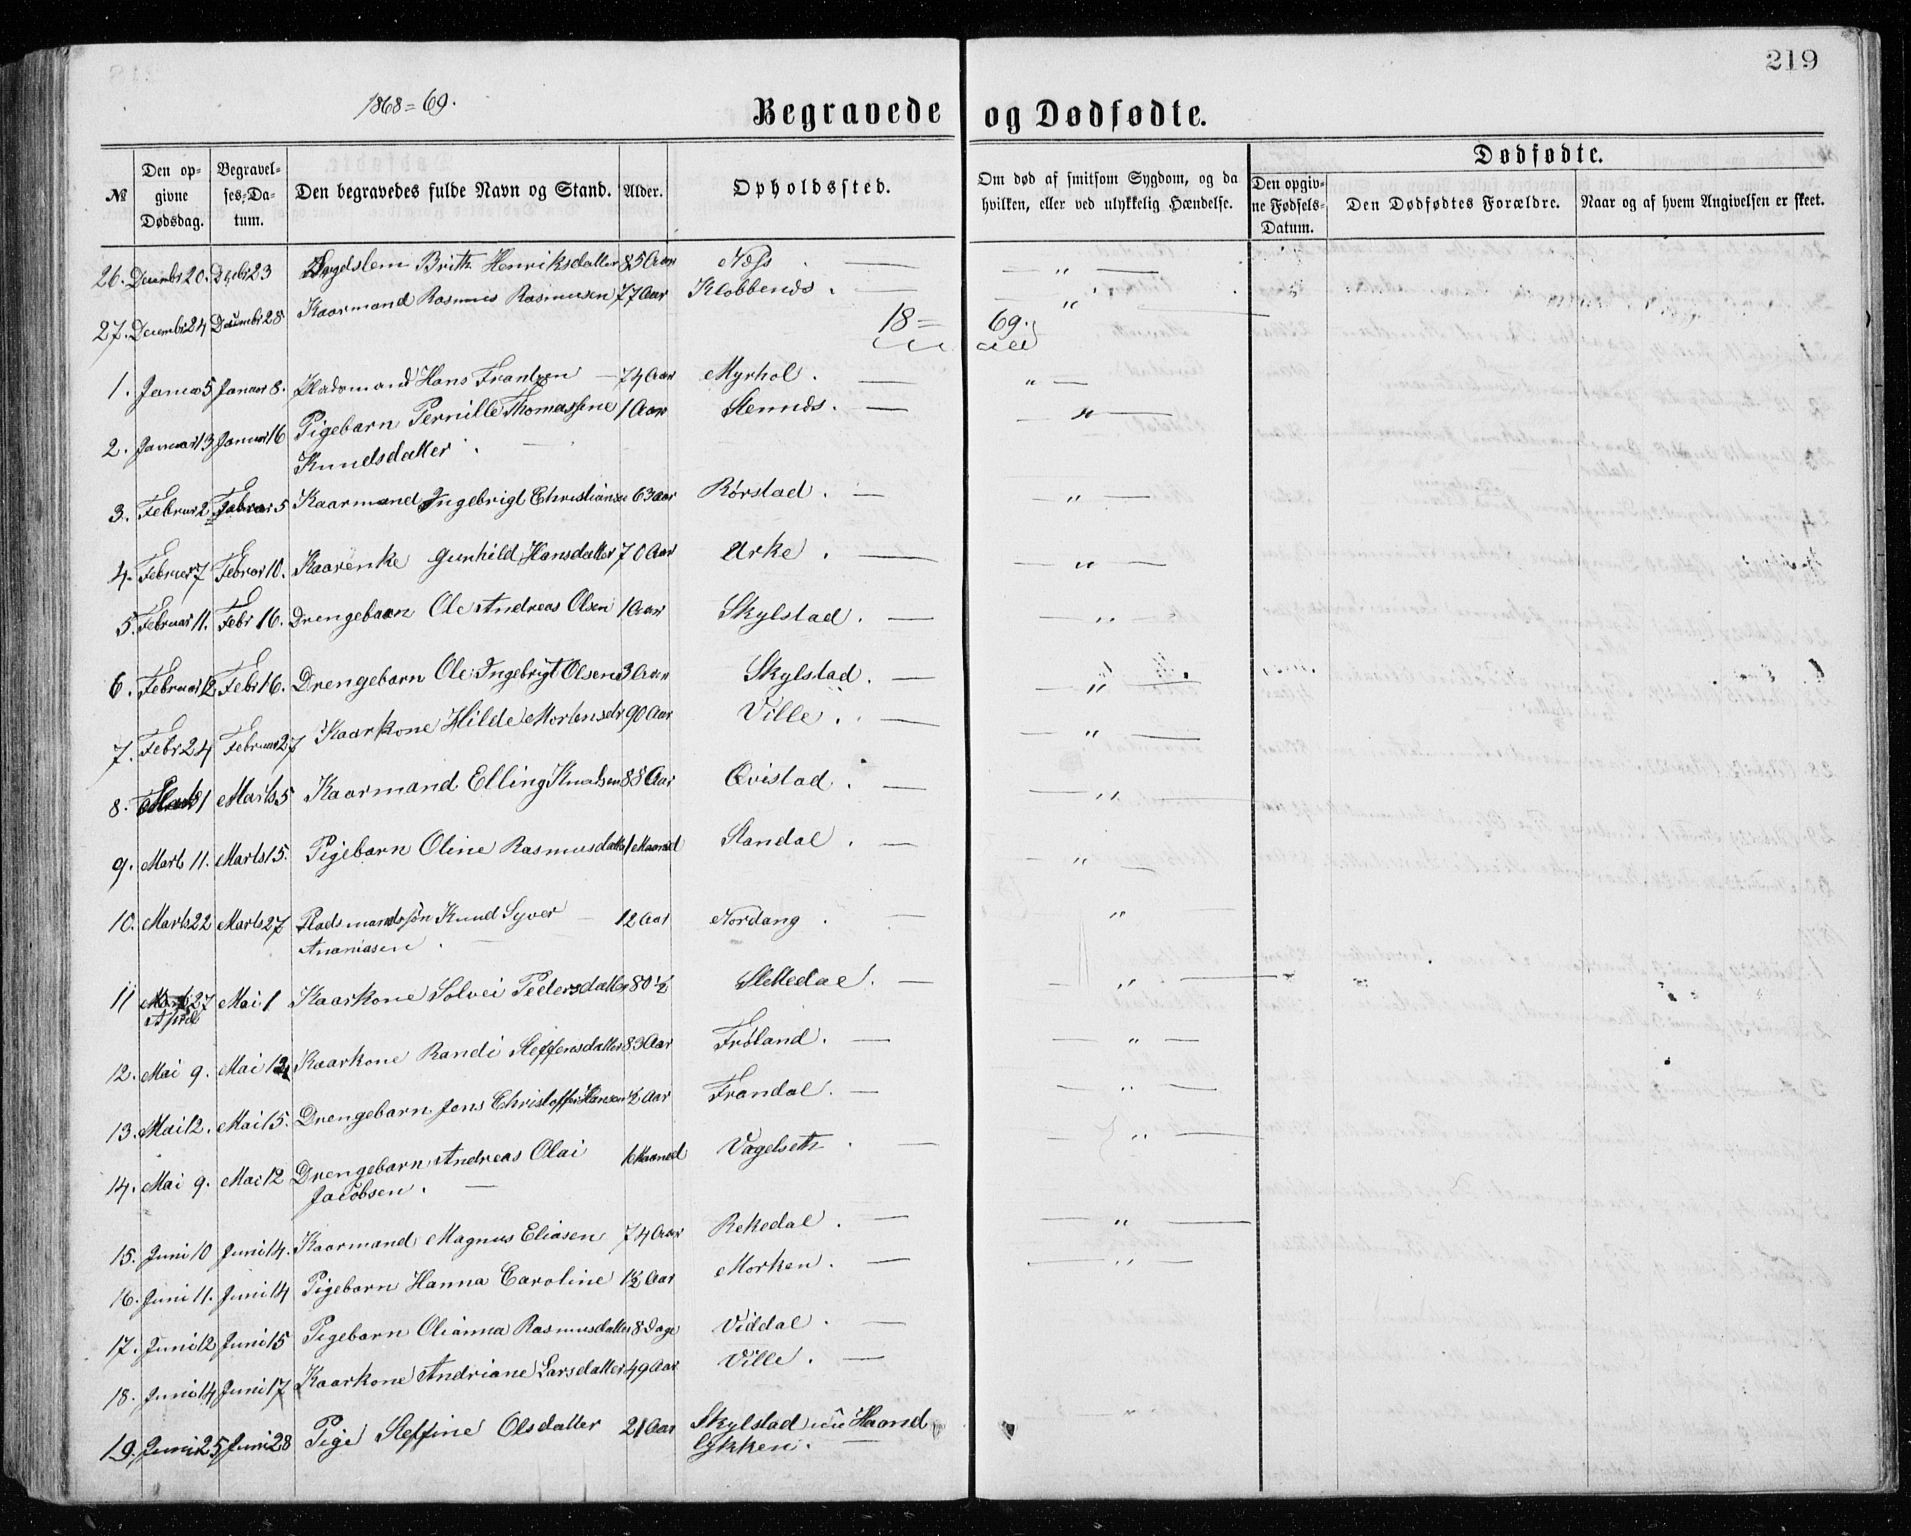 219
1868=69.
Begravede og Dødfødte.
Dødfødte.
№ Den opgivne Dødsdag. Begravelses-Datum. Den begravedes fulde Navn og Stand. Alder. Opholdssted. Om død af smitsom Sygdom, og da hvilken, eller ved ulykkelig Hændelse. Den opgivne Fødsels-Datum. Den Dødfødtes Forældre. Naar og af hvem Angivelsen er skeet.
26. Decembr 20. Decbr 23 Brith Henriksdatter 85 Aar Næss — " —
27. Decembr 24 Decembr 28 Kaarmand Rasmus Rasmusen 77 Aar Klobbenes. — " —
18= 69.
1. Januar 5 Januar 8. Pladsmand Hans Frantzen — 74 Aar Myrhol. — " —
2. Januar 13 Januar 16 Pigebarn Pernille Thomassine 1 Aar Stennes. — " —
Knudsdatter.
3. Februar 2 Februar 5 Kaarmand Ingebrigt Christiansen 63 aar Rørstad. — " —
4. Februar 7 Februar 10. Kaarenke Gunhild Hansdatter 70 Aar Urke. — " —
5. Februar 11. Febr 16. Drengebarn Ole Andreas Olsen 1 Aar Skylstad. — " —
6. Februar 12 Febr 16. Drengebarn Ole Ingebrigt Olsen 3 Aar Skylstad. — " —
7. Febr 24 Februar 27 Kaarkone Hilde Mortensdr 90 Aar Ville. — " —
8. Marts 1 Marts 5 Kaarmand Elling Knudsen 88 Aar Qvistad. — " —
9. Marts 11. Marts 15. Pigebarn Oline Rasmusdatter 1 Maaned Standal. — " —
10. Marts 22 Marts 27 Pladsmandssøn Knud Syver — 12 Aar Nordang. — "
Ananiasen. —
11 27 Mai 1 Kaarkone Solvei Pedersdatter 80 ½ Slettedal. — " —
April
12. Mai 9. Mai 12 Kaarkone Randi Steffensdatter 83 Aar Frøland. — " —
13. Mai 12. Mai 15. Drengebarn Jens Christoffer Hansen ½ Aar Frandal. — " —
14. Mai 9. Mai 12 Drengebarn Andreas Olai 6 Maaned Vagelseth. — " —
Jacobsen. —
15. Juni 10 Juni 14. Kaarmand Magnus Eliasen 74 Aar Rekedal. — " —
16. Juni 11. Juni 14 Pigebarn Hanna Caroline 1½ Aar Morken. — " —
17. Juni 12 Juni 15 Pigebarn Olianna Rasmusdatter 8 Dage Viddal. —
18. Juni 14 Juni 17 Kaarkone Andriane Larsdatter 49 Aar Ville. —
19. Juni 25 Juni 28 Pige Steffine Olsdatter 21 Aar Skylstad